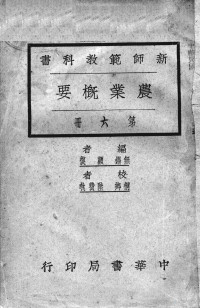 新師範教科書
農業概要
第六冊
編者
校者
中華書局印行